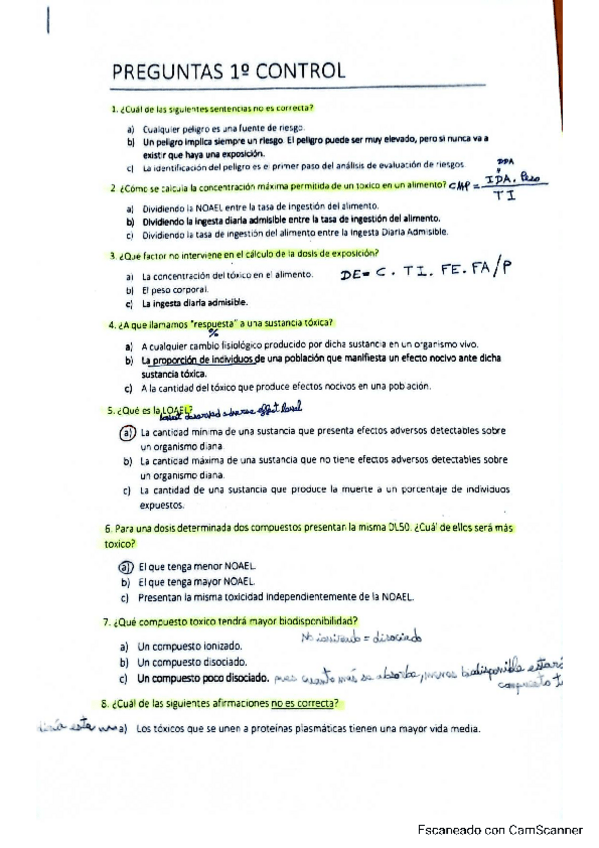 PREGUNTAS 1º CONTROL
1. ¿Cuál de las siguientes sentencias no es correcta?
a) Cualquier peligro es una fuente de riesgo.
b) Un peligro implica siempre un riesgo. El peligro puede ser muy elevado, pero si nunca va a
existir que haya una exposición.
c) La identificación del peligro es el primer paso del análisis de evaluación de riesgos.
2. ¿Cómo se calcula la concentración máxima permitida de un toxico en un alimento? CMP = IDA. Peso / TI
a) Dividiendo la NOAEL entre la tasa de ingestión del alimento.
b) Dividiendo la ingesta diaria admisible entre la tasa de ingestión del alimento.
c) Dividiendo la tasa de ingestión del alimento entre la Ingesta Diaria Admisible.
3. ¿Que factor no interviene en el cálculo de la dosis de exposición?
a) La concentración del tóxico en el alimento. DE = C . TI. FE. FA/P
b) El peso corporal.
c) La ingesta diaria admisible.
4. ¿A que llamamos "respuesta" a una sustancia tóxica?
%
a) A cualquier cambio fisiológico producido por dicha sustancia en un organismo vivo.
b) La proporción de individuos de una población que manifiesta un efecto nocivo ante dicha
sustancia tóxica.
c) A la cantidad del tóxico que produce efectos nocivos en una población.
5. ¿Qué es la LOAEL?
lowest observed adverse effect level
a) La cantidad mínima de una sustancia que presenta efectos adversos detectables sobre
un organismo diana.
b) La cantidad máxima de una sustancia que no tiene efectos adversos detectables sobre
un organismo diana.
c) La cantidad de una sustancia que produce la muerte a un porcentaje de individuos
expuestos.
6. Para una dosis determinada dos compuestos presentan la misma DL50. ¿Cuál de ellos será más
toxico?
a) El que tenga menor NOAEL.
b) El que tenga mayor NOAEL.
c) Presentan la misma toxicidad independientemente de la NOAEL.
7. ¿Qué compuesto toxico tendrá mayor biodisponibilidad?
a) Un compuesto ionizado. = disociado
b) Un compuesto disociado.
c) Un compuesto poco disociado. pues cuanto más se absorba, menos biodisponible estará
compuesto
8. ¿Cuál de las siguientes afirmaciones no es correcta?
a) Los tóxicos que se unen a proteínas plasmáticas tienen una mayor vida media.
Escaneado con CamScanner